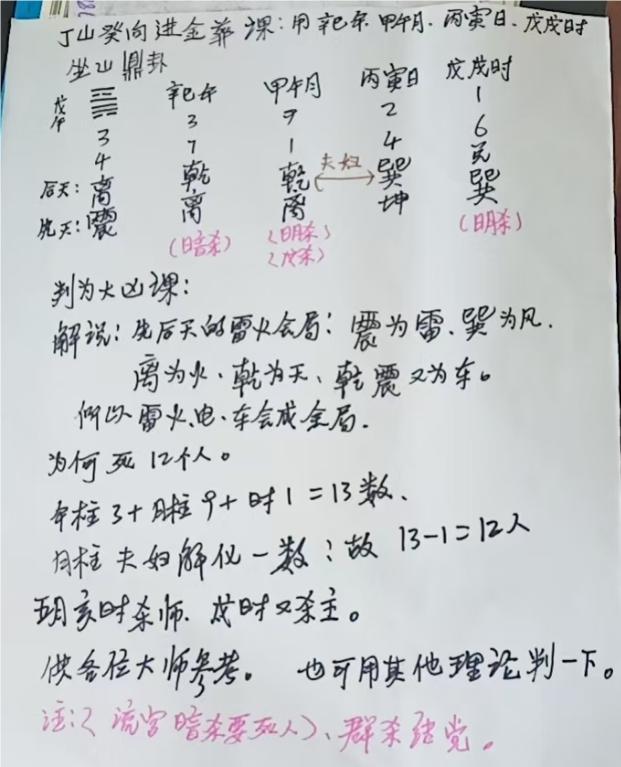 丁山癸向进金葬课:用辛巳年.甲午月.丙寅日.戊戌时
坐山鼎卦
戊午 辛巳年 甲午月 丙寅日 戊戌时
3 9 2 1
3 7 1 4 6
4 乾 乾 夫妇 巽 艮
后天:离 离 离 坤 巽
先天:震 (暗杀) (明杀) (明杀)
(戊杀)
判为大凶课:
解说:先后天的雷火会局:震为雷.巽为风.
离为火、乾为天、乾震又为车。
何以雷火、电、车会成全局.
为何死12个人。
年柱3+月柱9+时1=13数、
月柱夫妇解化一数:故13-1=12人
亥时杀师.戊时又杀主。
供各位大师参考。 也可用其他理论判一下。
注:(流宫暗杀要死人)、群杀结党。